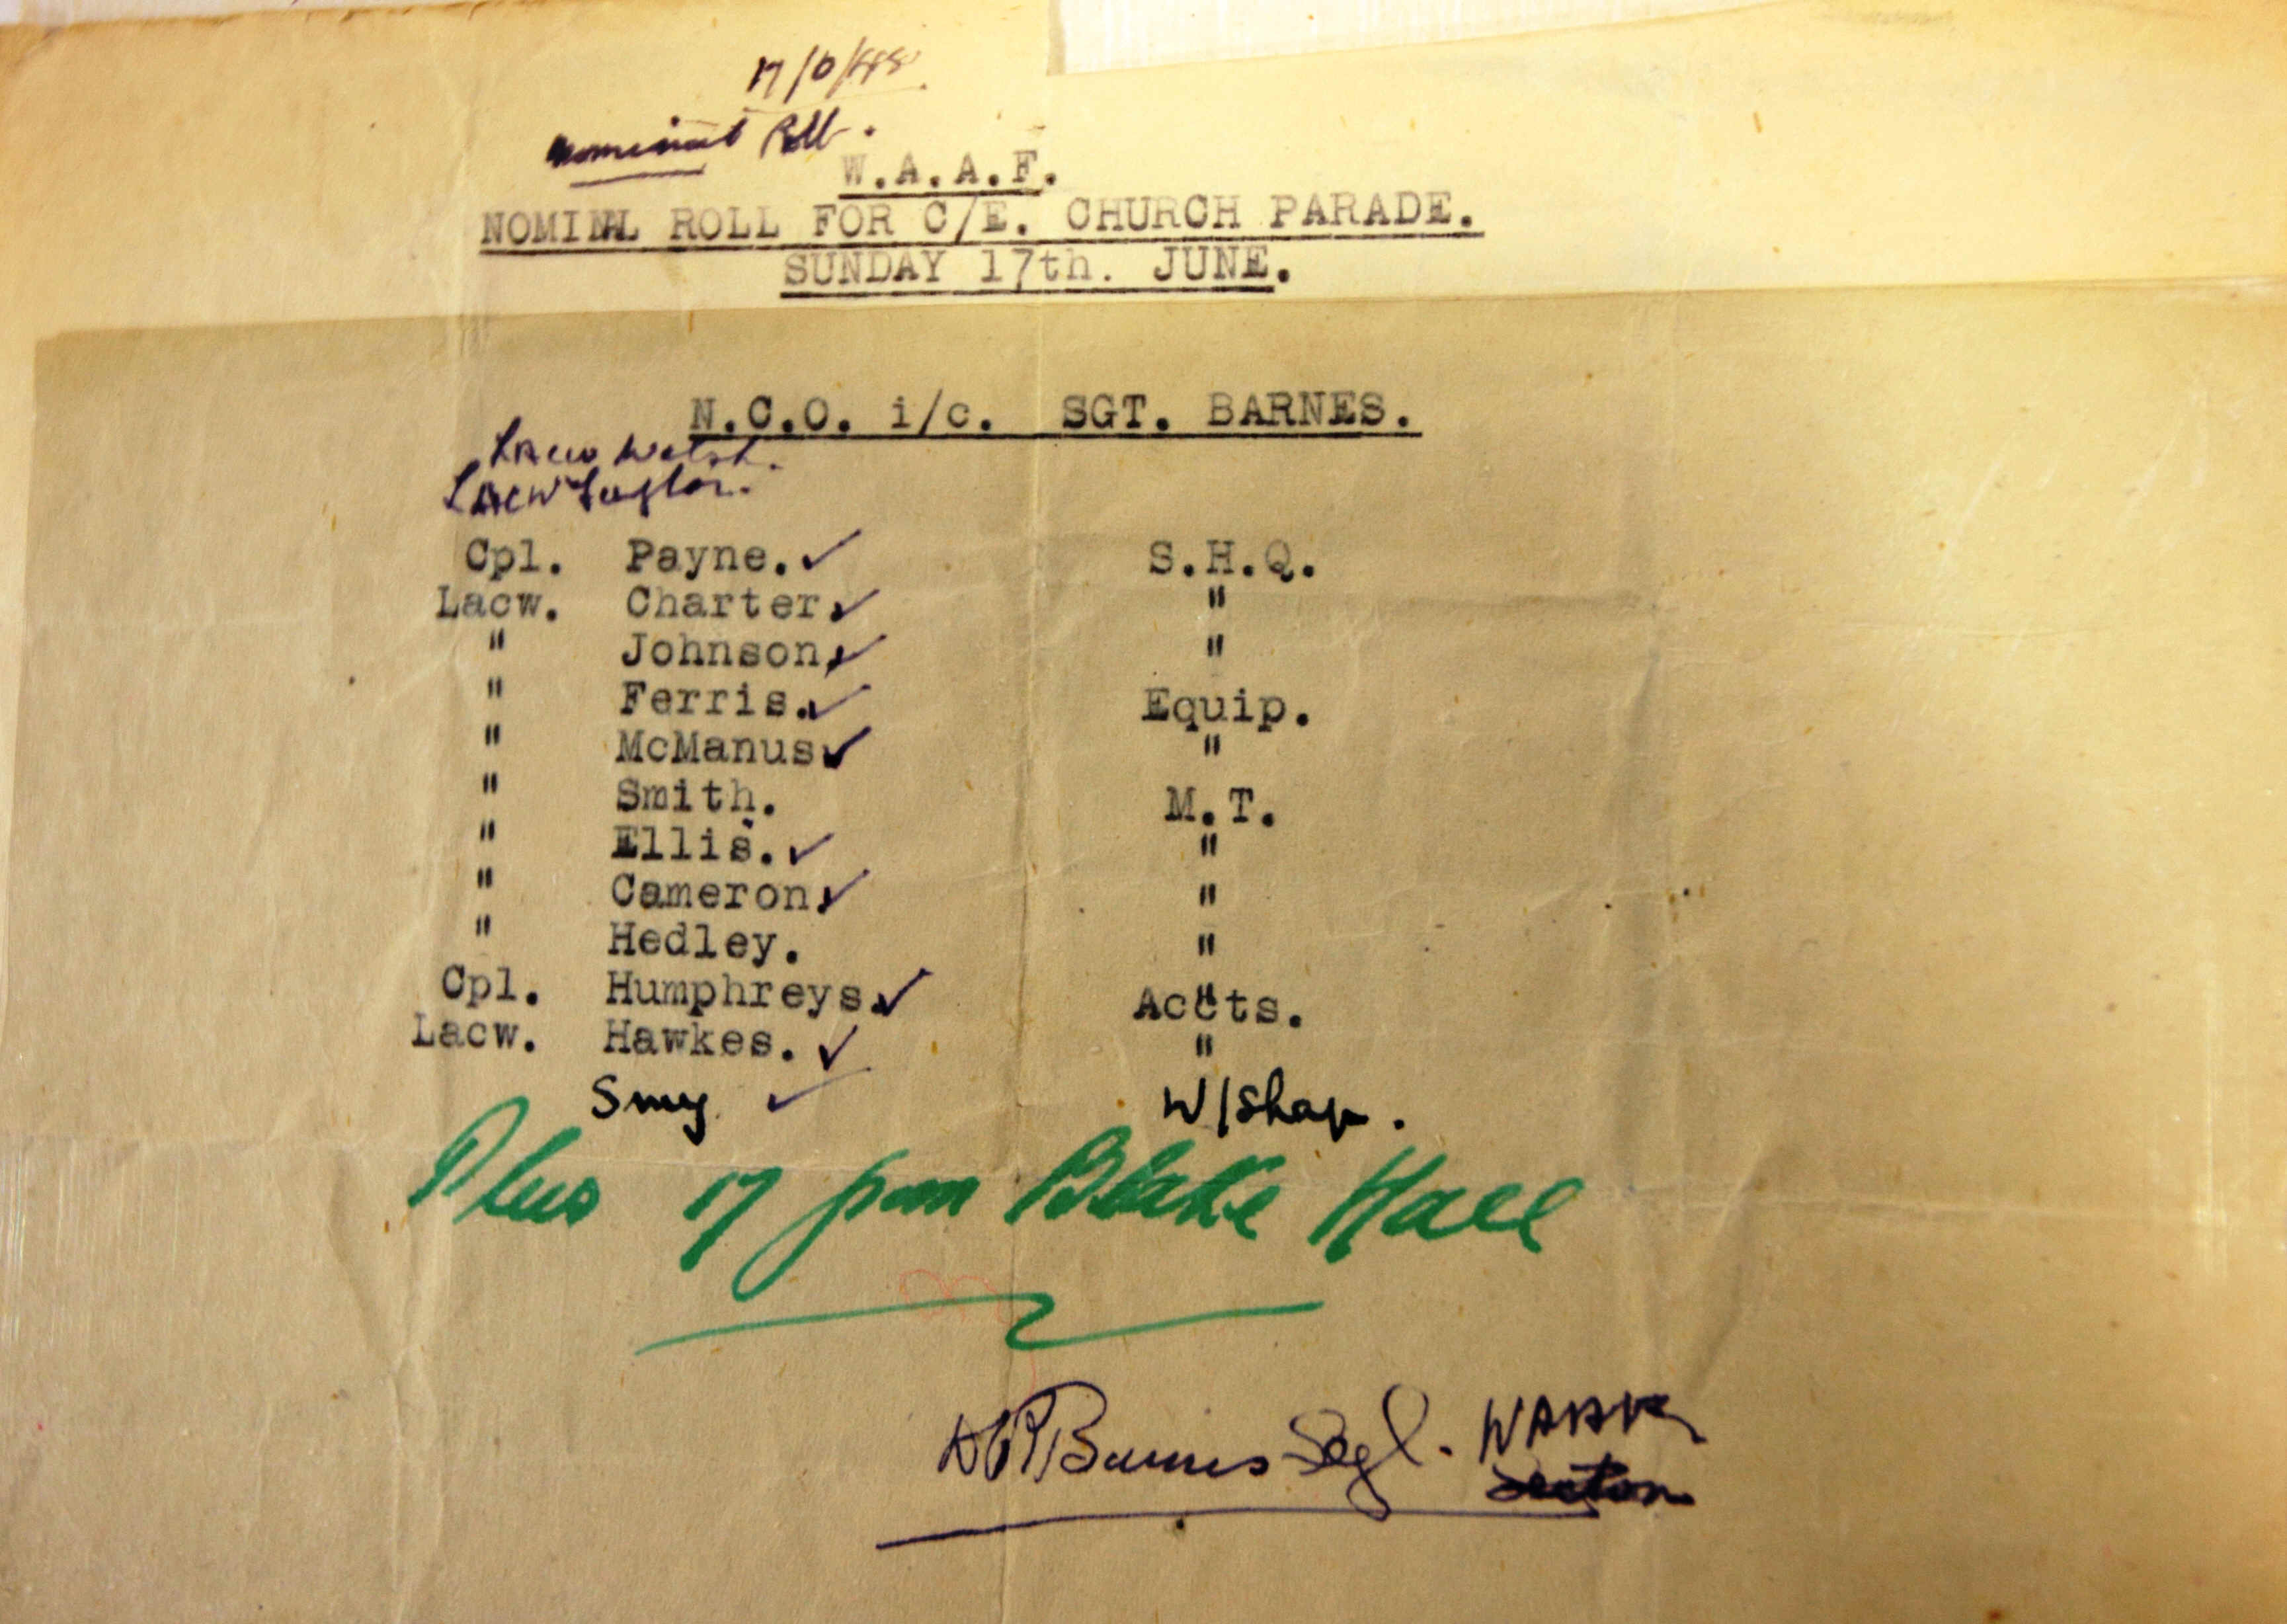 Nominal Roll.
W.A.A.F.
NOMINAL ROLL FOR C/E. CHURCH PARADE.
SUNDAY 17th. JUNE.
N.C.O. i/c. SGT. BARNES.
Lacw Welsh.
LACW Taylor.
Cpl. Payne. ✓ S.H.Q.
Lacw. Charter. ✓ "
" Johnson. ✓ "
" Ferris. ✓ Equip.
" McManus. ✓ "
" Smith. M.T.
" Ellis. ✓ "
" Cameron. ✓ "
" Hedley. "
Cpl. Humphreys. ✓ Accts.
Lacw. Hawkes. ✓ "
Smy ✓ W/Shop.
Plus 17 from Blake Hall
Barnes Sgt. WAAF
Section